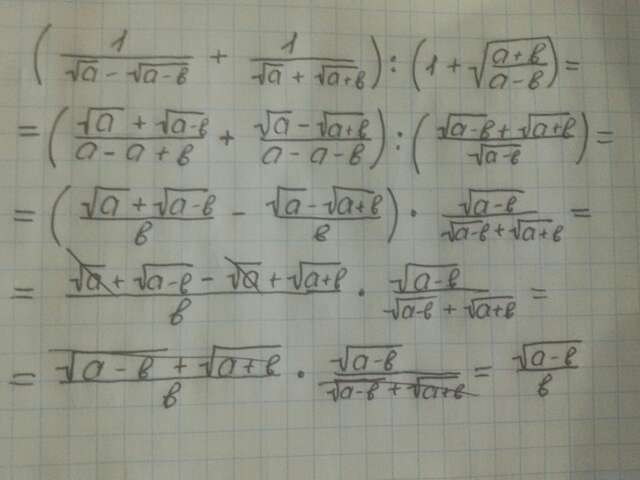 (1/(√a − √(a−b)) + 1/(√a + √(a+b))) : (1 + √((a+b)/(a−b))) =
= ((√a + √(a−b))/(a − a + b) + (√a − √(a+b))/(a − a − b)) : ((√(a−b) + √(a+b))/√(a−b)) =
= ((√a + √(a−b))/b − (√a − √(a+b))/b) · √(a−b)/(√(a−b) + √(a+b)) =
= (√a + √(a−b) − √a + √(a+b))/b · √(a−b)/(√(a−b) + √(a+b)) =
= (√(a−b) + √(a+b))/b · √(a−b)/(√(a−b) + √(a+b)) = √(a−b)/b